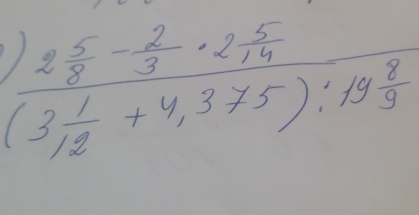 ) 2 5/8 - 2/3 · 2 5/14
(3 1/12 + 4,375) : 19 8/9